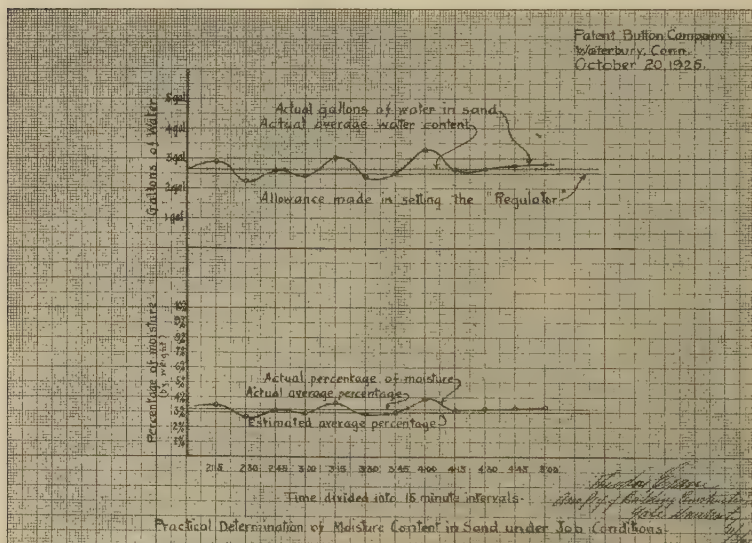 Patent Button Company
Waterbury, Conn.
October 20, 1925.
Gallons of Water
5 gal
4 gal
3 gal
2 gal
1 gal
Actual gallons of water in sand
Actual average water content
Allowance made in setting the "Regulator"
Percentage of moisture
(by weight)
10%
9%
8%
7%
6%
5%
4%
3%
2%
1%
Actual percentage of moisture
Actual average percentage
Estimated average percentage
2:15 2:30 2:45 3:00 3:15 3:30 3:45 4:00 4:15 4:30 4:45 5:00
Time divided into 15 minute intervals.
of Building Construction
Yale
Practical Determination of Moisture Content in Sand under Job Conditions